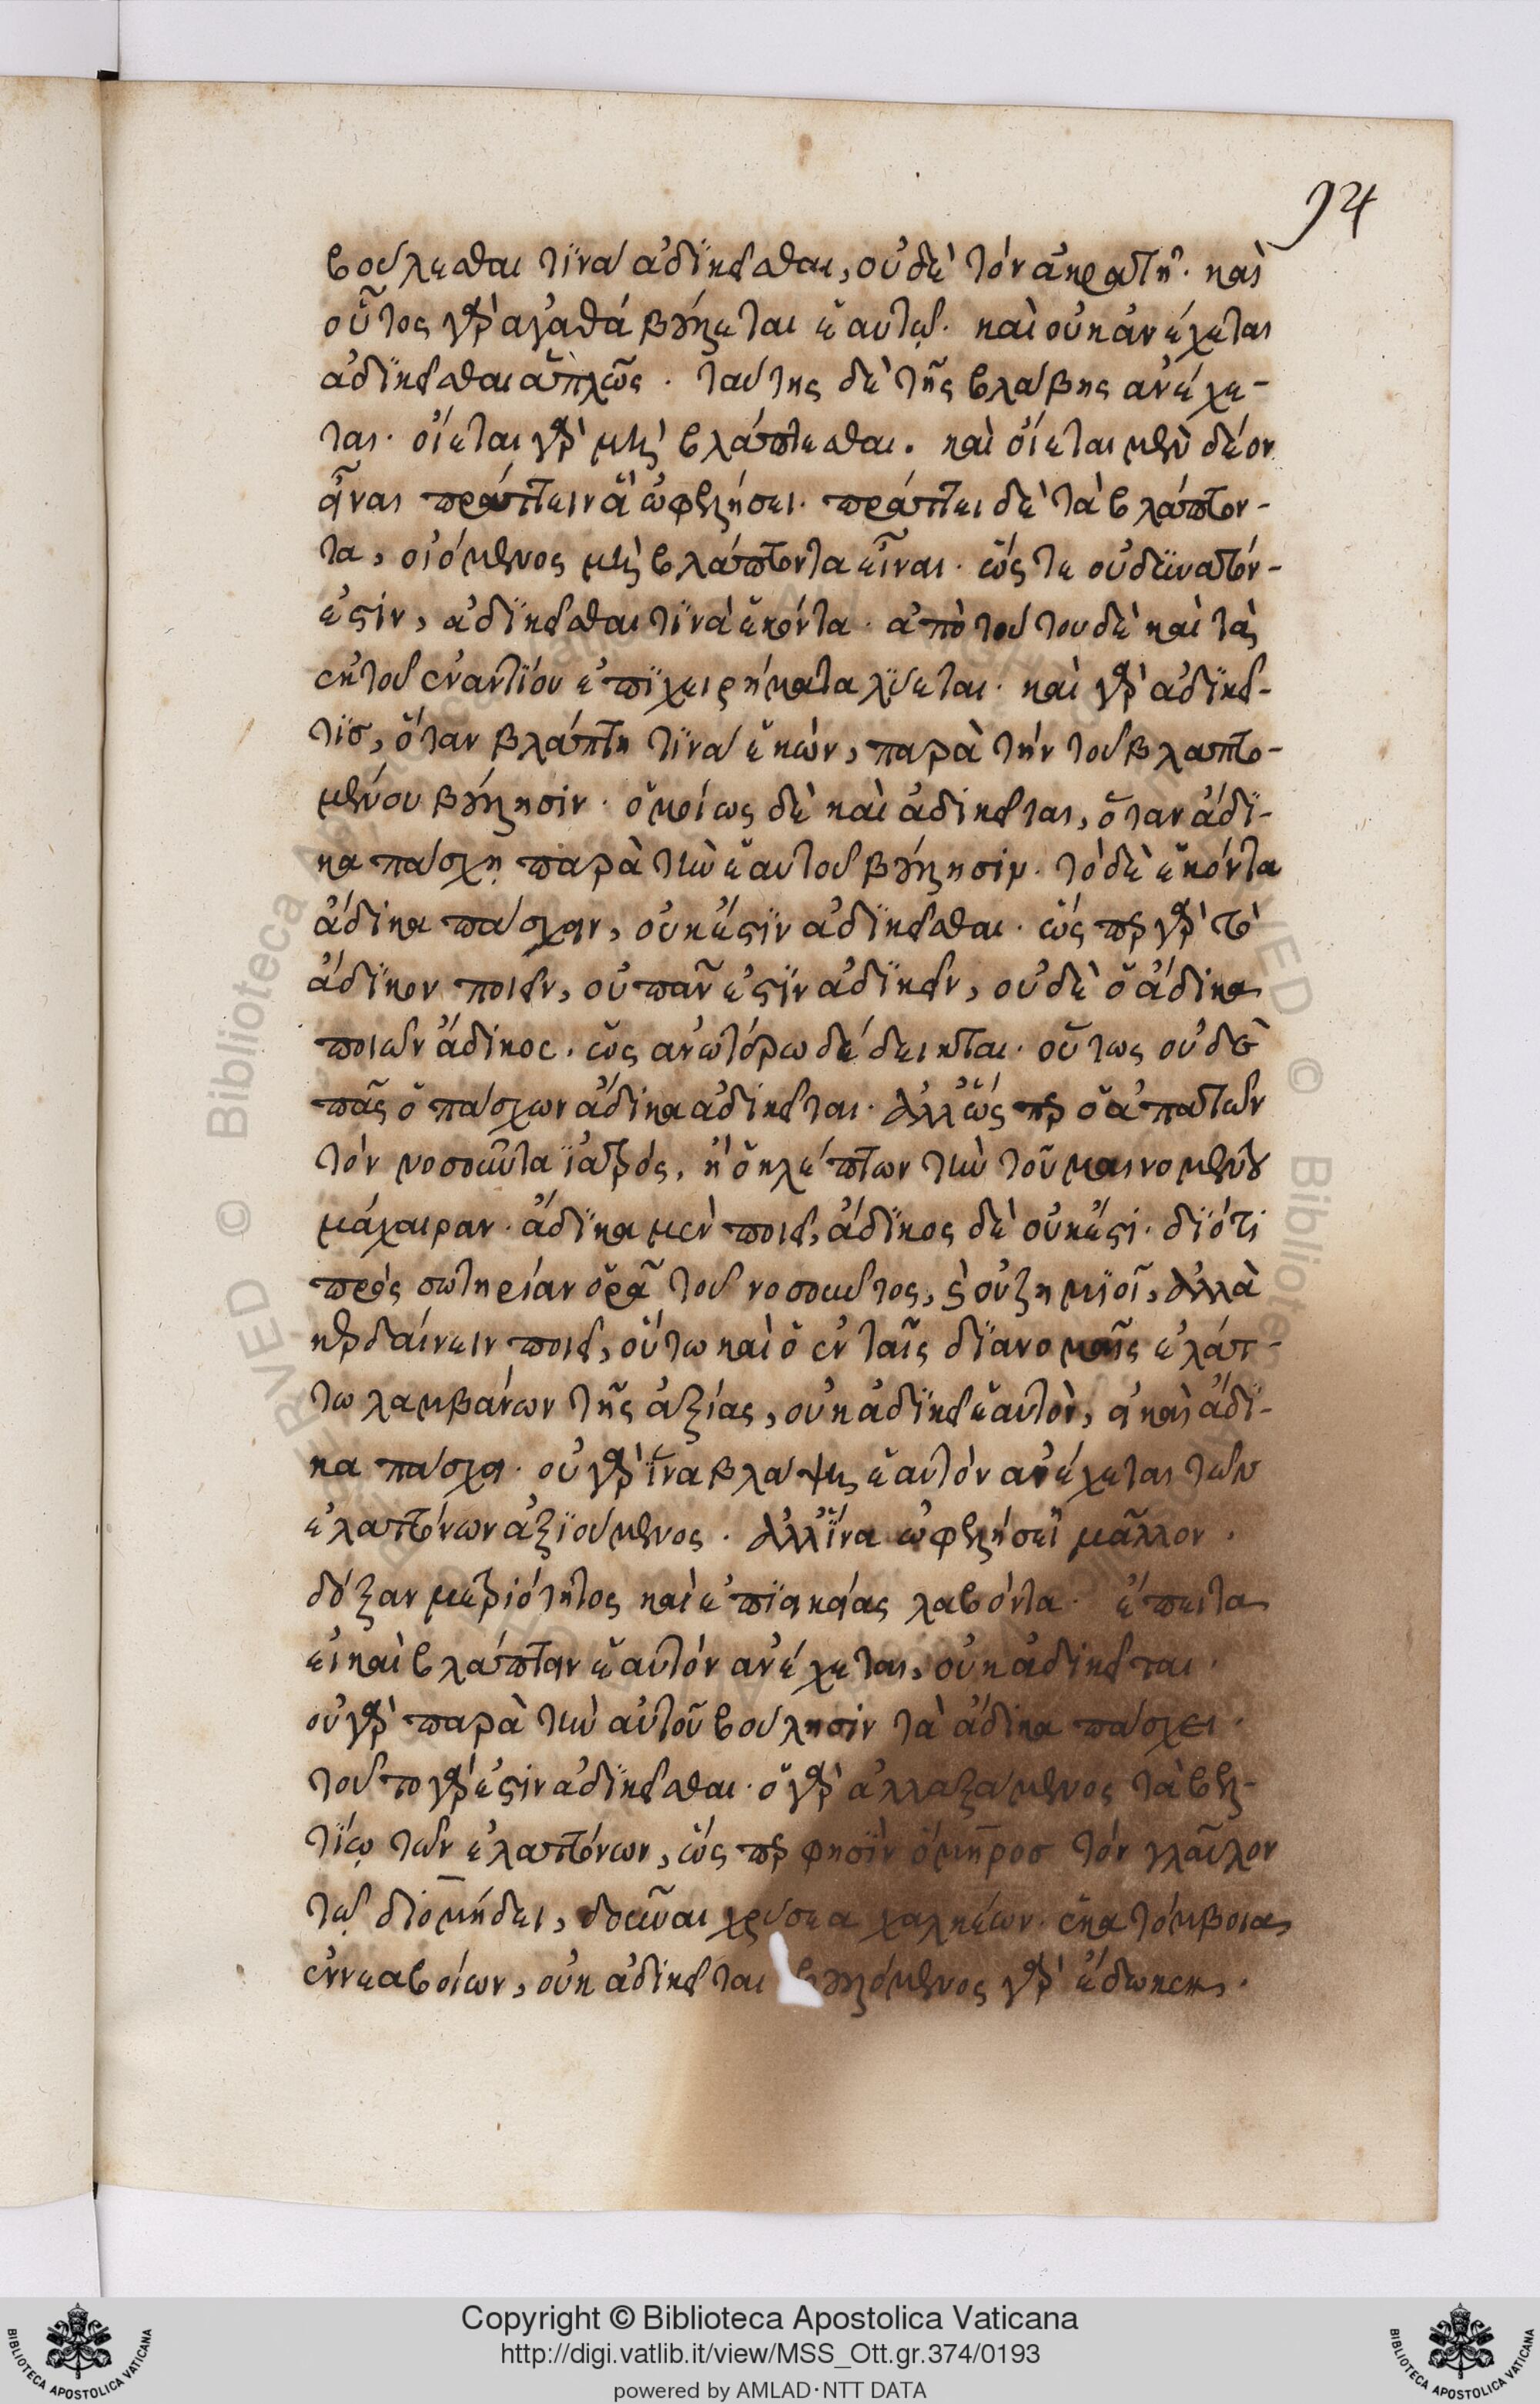 94
βούλεσθαι τινὰ ἀδικεῖσθαι, οὐδὲ τὸν ἀκρατῆ· καὶ
οὗτος γὰρ ἀγαθὰ βούλεται ἑαυτῷ· καὶ οὐκ ἀνέχεται
ἀδικεῖσθαι ἁπλῶς· ταύτης δὲ τῆς βλάβης ἀνέχε-
ται· οἴεται γὰρ μὴ βλάπτεσθαι. καὶ οἴεται μὲν δέον
εἶναι πράττειν ἃ ὠφελήσει· πράττει δὲ τὰ βλάπτον-
τα, οἰόμενος μὴ βλάπτοντα εἶναι· ὥς τε οὐ δυνατόν-
ἐστιν, ἀδικεῖσθαι τινὰ ἑκόντα· ἀπὸ τούτου δὲ καὶ τὰ
ἐκ τοῦ ἐναντίου ἐπιχειρήματα λύεται· καὶ γὰρ ἀδικεῖ-
τίσ, ὅταν βλάπτη τινὰ ἑκὼν, παρὰ τὴν τοῦ βλαπτο-
μένου βούλησιν· ὁμοίως δὲ καὶ ἀδικεῖται, ὅταν ἄδι-
κα πάσχῃ παρὰ τὴν ἑαυτοῦ βούλησιν. τὸ δὲ ἑκόντα
ἄδικα πάσχειν, οὐκ ἔστιν ἀδικεῖσθαι· ὥς περ γὰρ τὸ
ἄδικον ποιεῖν, οὐ πᾶν ἐστὶν ἀδικεῖν, οὐδὲ ὁ ἄδικα
ποιῶν ἄδικος. ὡς ἀνωτέρω δέδεικται· οὕτως οὐδὲ
πᾶς ὁ πάσχων ἄδικα ἀδικεῖται· ἀλλ' ὥς περ ὁ ἀπατῶν
τὸν νοσοῦντα ἰατρός, ἢ ὁ κλέπτων τὴν τοῦ μαινομένου
μάχαιραν· ἄδικα μὲν ποιεῖ, ἄδικος δὲ οὐκ ἔστι· διότι
πρὸς σωτηρίαν ὁρᾷ τοῦ νοσοῦντος, καὶ οὐ ζημιοῖ, ἀλλὰ
κερδαίνειν ποιεῖ, οὕτω καὶ ὁ ἐν ταῖς διανομαῖς ἐλάτ-
τω λαμβάνων τῆς ἀξίας, οὐκ ἀδικεῖ ἑαυτὸν, εἰ καὶ ἄδι-
κα πάσχει· οὐ γὰρ ἵνα βλάψῃ ἑαυτὸν ἀνέχεται τῶν
ἐλαττόνων ἀξιούμενος· ἀλλ' ἵνα ὠφελήσει μᾶλλον·
δόξαν μετριότητος καὶ ἐπιεικείας λαβόντα· ἔπειτα
εἰ καὶ βλάπτειν ἑαυτὸν ἀνέχεται, οὐκ ἀδικεῖται·
οὐ γὰρ παρὰ τὴν αὐτοῦ βούλησιν τὰ ἄδικα πάσχει·
τοῦτο γάρ ἐστιν ἀδικεῖσθαι· ὁ γὰρ ἀλλαξάμενος τὰ βελ-
τίω τῶν ἐλαττόνων, ὥς περ φησὶν ὅμηροσ τὸν γλαῦκον
τῷ διομήδει, δοῦναι χρύσεα χαλκέων· ἑκατόμβοια
ἐννεαβοίων, οὐκ ἀδικεῖται βουλόμενος γὰρ ἔδωκεν.
Copyright © Biblioteca Apostolica Vaticana
http://digi.vatlib.it/view/MSS_Ott.gr.374/0193
powered by AMLAD·NTT DATA